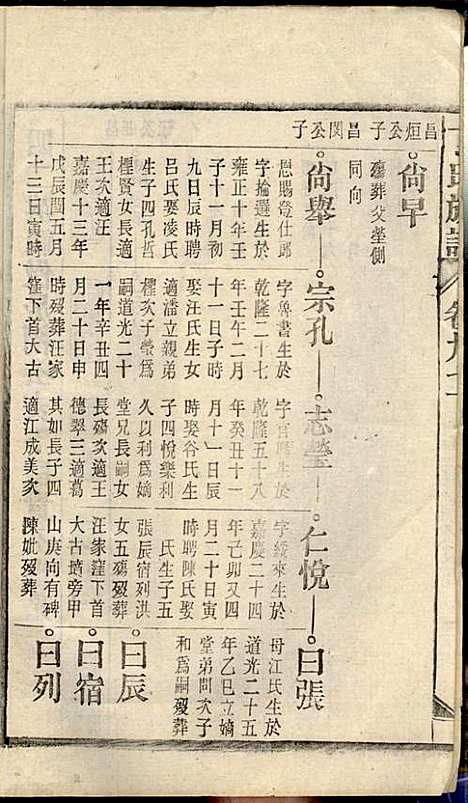 氏族譜 卷九十
昌烜公子
昌閔公子
尚早
殤葬父塋側
同向
尚舉 宗孔 志瑩 仁悅 曰張
恩賜登仕郎
字掄選生於
雍正十年壬
子十一月初
九日辰時聘
呂氏娶凌氏
生子四孔哲
樫賢女長適
王次適汪
嘉慶十三年
戊辰閏五月
十三日寅時
字魯書生於
乾隆二十七
年壬午二月
十一日子時
娶汪氏生女
適潘立親弟
樫次子瑩爲
嗣道光二十
一年辛丑四
月二十日申
時歿葬汪家
窪下首大古
字官生於
乾隆五十八
年癸丑十一
月十一日辰
時娶谷氏生
子四悅樂利
久以利爲嫡
堂兄長嗣女
長殤次適王
德翠三適葛
其如長子四
適江成美次
字綏來生於
嘉慶二十四
年己卯又四
月二十日寅
時聘陳氏娶
氏生子五
張辰宿列洪
女五殤歿葬
汪家窪下首
大古墳旁甲
山庚向有碑
陳妣歿葬
母江氏生於
道光二十五
年乙巳立嫡
堂弟問次子
和爲嗣歿葬
曰辰
曰宿
曰列